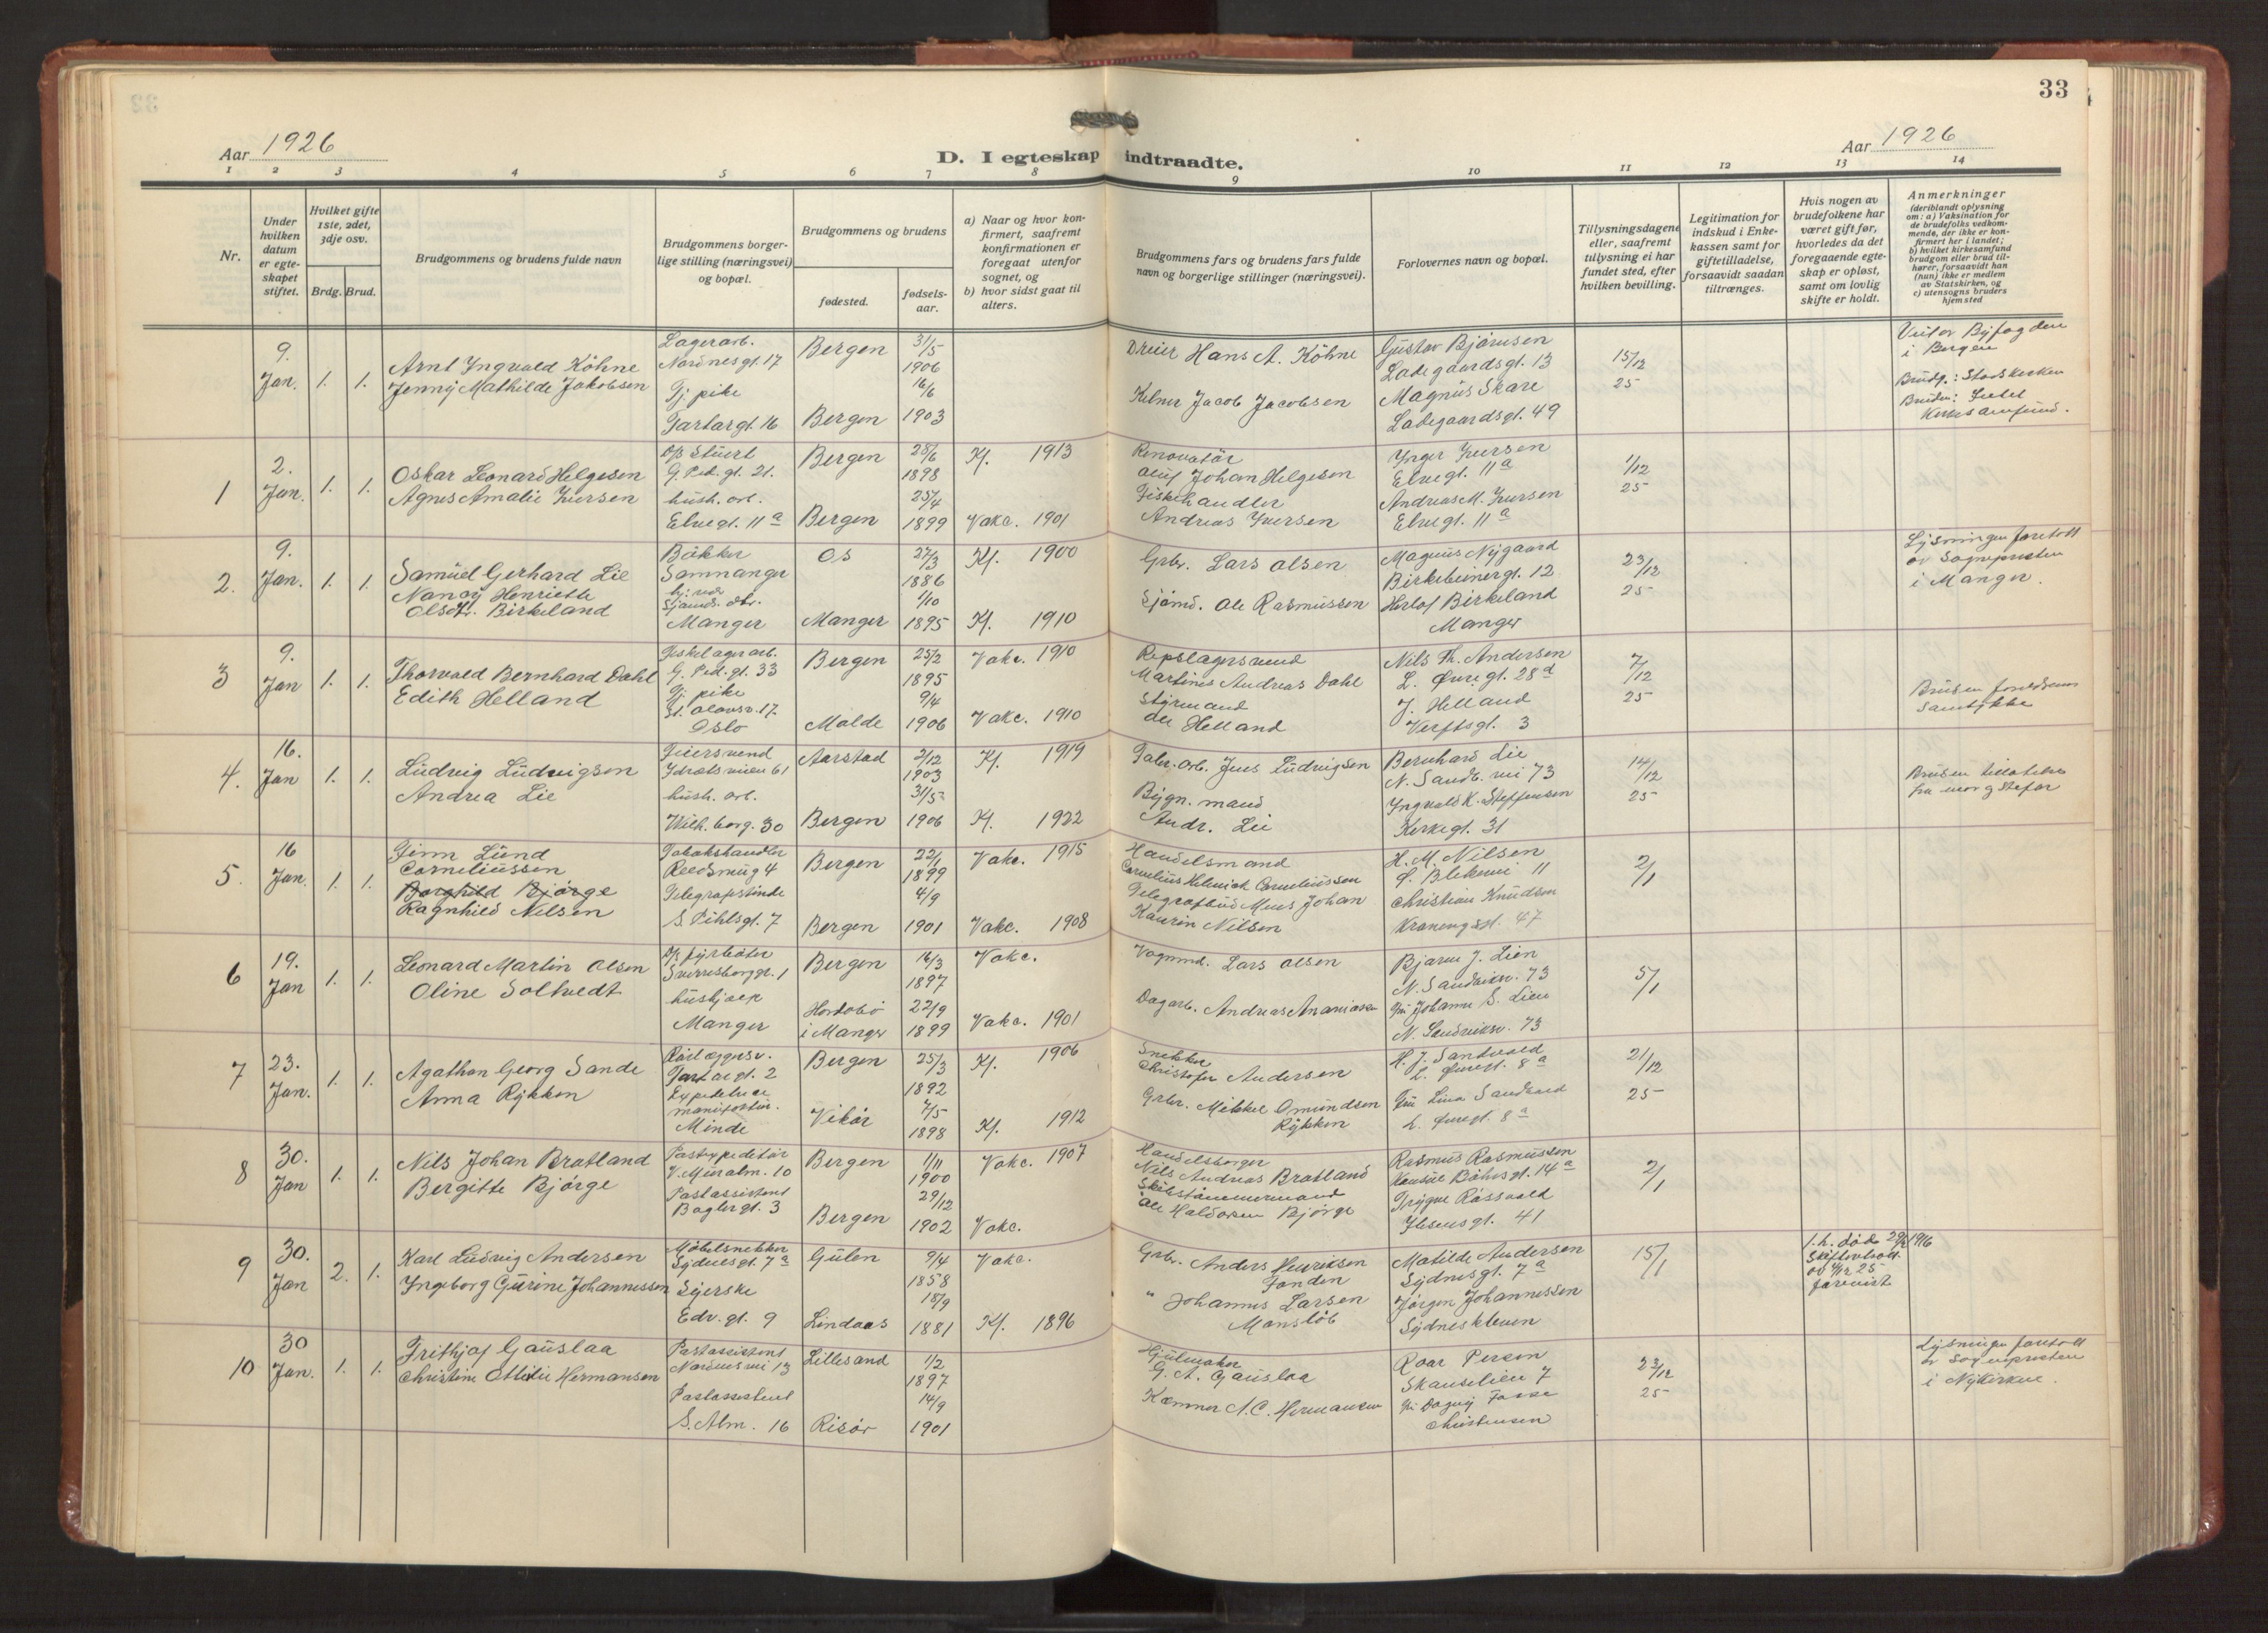 33
Aar 1926
D. I egteskap indtraadte.
Aar 1926
1 2 3 4 5 6 7 8 9 10 11 12 13 14
Nr.
Under hvilken datum er egteskapet stiftet.
Hvilket gifte 1ste, 2det, 3dje osv.
Brdg. Brud.
Brudgommens og brudens fulde navn
Brudgommens borgerlige stilling (næringsvei) og bopæl.
Brudgommens og brudens
fødested.
fødselsaar.
a) Naar og hvor konfirmert, saafremt konfirmationen er foregaat utenfor sognet, og
b) hvor sidst gaat til alters.
Brudgommens fars og brudens fars fulde navn og borgerlige stillinger (næringsvei).
Forlovernes navn og bopæl.
Tillysningsdagene eller, saafremt tillysning ei har fundet sted, efter hvilken bevilling.
Legitimation for indskud i Enkekassen samt for giftetilladelse, forsaavidt saadan tiltrænges.
Hvis nogen av brudefolkene har været gift før, hvorledes da det foregaaende egteskap er opløst, samt om lovlig skifte er holdt.
Anmerkninger
(deriblandt oplysning om: a) Vaksination for de brudefolks vedkommende, der ikke er konfirmert her i landet; b) hvilket kirkesamfund brudgom eller brud tilhører, forsaavidt han (hun) ikke er medlem av Statskirken, og c) utensogns bruders hjemsted
9. Jan. 1. 1.
Arnt Ingvald Köhne
Jenny Mathilde Jakobsen
Lagerarb.
Nordnesgt. 17
Tj. pike
Tartargt. 16
Bergen 31/5 1906
Bergen 16/6 1903
Dreier Hans A. Köhne
Kelner Jacob Jacobsen
Gustav Bjørnsen
Ladegaardsgt. 13
Magnus Skare
Ladegaardsgt. 49
15/12 25
Viet av Byfogden
i Bergen
Brudg.: Statskirken
1 2. Jan. 1. 1.
Oskar Leonard Helgesen
Agnes Amalie Iversen
D/s Stuert
G. Ped. gt. 21.
hush. arb.
Elvegt. 11a
Bergen 28/6 1898 Kf. 1913
Bergen 25/4 1899 Vakc. 1901
Renovatør
Oluf Johan Helgesen
Fiskehandler
Andreas Iversen
Inger Iversen
Elvegt. 11a
Andreas M. Iversen
Elvegt. 11a
1/12 25
2. 9. Jan. 1. 1.
Samuel Gerhard Lie
Nancy Henriette
Olsdtr. Birkeland
Bakker
Samnanger
Manger
Os 27/3 1886 Kf. 1900
Manger 1/10 1895 Kf. 1910
Grbr. Lars Olsen
Sjømd. Ole Rasmussen
Magnus Nygaard
Birkebeinergt. 12
Herlof Birkeland
Manger
23/12 25
Lysningen foretatt
av Sognepresten
i Manger.
3 9. Jan 1. 1.
Thorvald Bernhard Dahl
Edith Helland
Fiskelagerarb.
G. Ped. gt. 33
Tj. pike
St. Olavsv. 17
Oslo
Bergen 25/2 1895 Vakc. 1910
Molde 9/4 1906 Vakc. 1910
Repslagersvend
Martines Andreas Dahl
Styrmand
Ole Helland
Nils Th. Andersen
L. Øvregt. 28d
J. Helland
Verftsgt. 3
7/12 25
Bruden foreldrenes
Samtykke
4. 16. Jan 1. 1.
Ludvig Ludvigsen
Andrea Lie
Idrætsveien 61
hush. arb.
Wilh. borg. 30
Aarstad 2/12 1903 Kf. 1919
Bergen 31/5 1906 Kf. 1922
Fabr. arb. Jens Ludvigsen
Bygn. mand
Andr. Lie
Bernhard Lie
N. Sandv. vei 73
Ingvald K. Steffensen
Kirkegt. 31
14/12 25
fra mor og Stefar
5. 16 Jan. 1. 1.
Finn Lund
Corneliussen
Borghild Bjørge
Ragnhild Nilsen
Tobakshandler
Reedsmug 4
S. Pihlsgt. 7
Bergen 22/1 1899 Vakc. 1915
Bergen 4/9 1901 Vakc. 1908
Handelsmand
Cornelius Helmich Corneliussen
Telegrafbud Mens Johan
Kaurin Nilsen
H. M. Nilsen
Ø. Blekevei 11
Christian Knudsen
47
2/1
6 19. Jan 1. 1.
Leonard Martin Olsen
Oline Soltvedt
D/s fyrbøter
Sverresborggt. 1
hushjælp
Manger
Bergen 16/3 1897 Vakc.
Herdobø
i Manger 22/9 1899 Vakc. 1901
Vognmd. Lars Olsen
Dagarb. Andreas Ananiassen
Bjarne J. Lien
N. Sandviksv. 73
Fru Johanne S. Lien
N. Sandviksv. 73
5/1
7 23. Jan. 1. 1.
Agathon Georg Sande
Anna Rykken
Rørlæggersv.
Tartargt. 2
Minde
Bergen 25/3 1892 Kf. 1906
Vikør 7/5 1898 Kf. 1912
Snekker
Christofer Andersen
Grbr. Mikkel Omundsen
Rykken
H. J. Sandvold
L. Øvregt. 8a
Fru Lina Sandvold
L. Øvregt. 8a
21/12 25
8 30. Jan 1. 1.
Nils Johan Bratland
Bergitte Bjørge
Postexpeditør
V. Muralm. 10
Postassistent
Baglergt. 3
Bergen 1/11 1900 Vakc. 1907
Bergen 29/12 1902 Vakc.
Handelsborger
Nils Andreas Bratland
Skibstømmermand
Ole Haldorsen Bjørge
Rasmus Rasmussen
Konsul Børhsgt. 14a
Trygve Røssvold
Ibsensgt. 41
2/1
9 30. Jan 2. 1.
Karl Ludvig Andersen
Ingeborg Gurine Johannessen
Møbelsnekker
Sydnesgt. 7a
Syerske
Edv. gt. 9
Gulen 9/4 1858 Vakc.
Lindaas 18/9 1881 Kf. 1896
Grbr. Anders Henriksen
" Johannes Larsen
Monsløb
Matilde Andersen
Sydnesgt. 7a
Jørgen Johannessen
Sydneskleven
15/1
1. h. død 1916
Skifteattest
forevist
10 30 Jan. 1. 1.
Frithjof Gauslaa
Christine Ottilie Hermansen
Postassistent
Nordnesvei 13
Postassistent
S. Alm. 16
Lillesand 1/2 1897
Risør 14/9 1901
Hjulmaker
G. A. Gauslaa
Kæmner A. C. Hermansen
Roar Person
Skanselien 7
Fru Dagny Fosse
Christensen
23/12 25
Lysningen foretatt
av Sognepresten
i Nykirken.